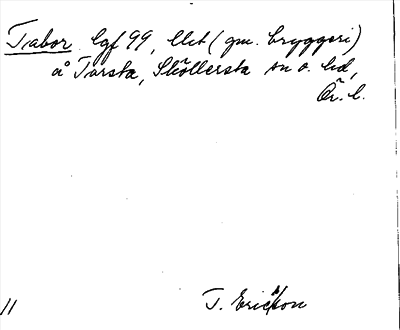 Tabor lgf 99, llet (gm. bryggeri)
å Torsta, Sköllersta sn o. hd,
Ör. l.
T. Ericsson
11